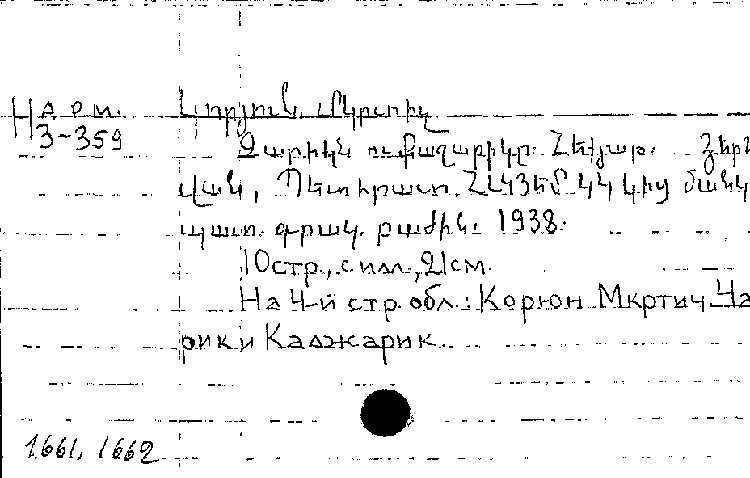 На арм. Կորյուն, Մկրտիչ
3-359 Չարիկն ու քաջարիկը. Հեքյաթ. Յերև
վան, Պետհրատ. ՀԼԿՅԵՄ ԿԿ կից մանկ
պատ. գրակ. բաժին. 1938.
10 стр., с илл., 21 см.
На 4-й стр. обл.: Корюн Мкртич Ча
рик и Каджарик.
1661, 1662